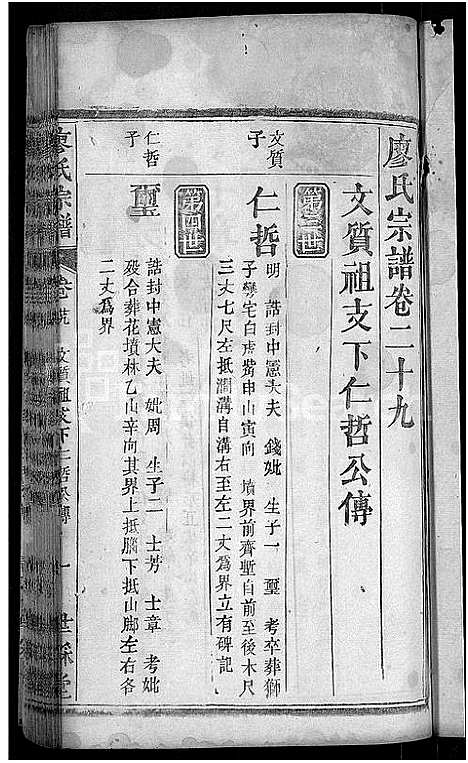 廖氏宗譜卷二十九
文質祖支下仁哲公傳
第三世
文質子
仁哲
明 誥封中憲大夫 錢妣 生子一 璽 考卒葬獅
子 宅白虎嘴申山寅向 墳界前齊塹自前至後木尺
三丈七尺左抵澗溝自溝右至左二丈爲界立有碑記
第四世
仁哲子
璽
誥封中憲大夫 妣周 生子二 士芳 士章 考妣
歿合葬花墳林乙山辛向其界上抵腦下抵山脚左右各
二丈爲界
廖氏宗譜 卷 文質祖支下仁哲公傳 一 世 堂